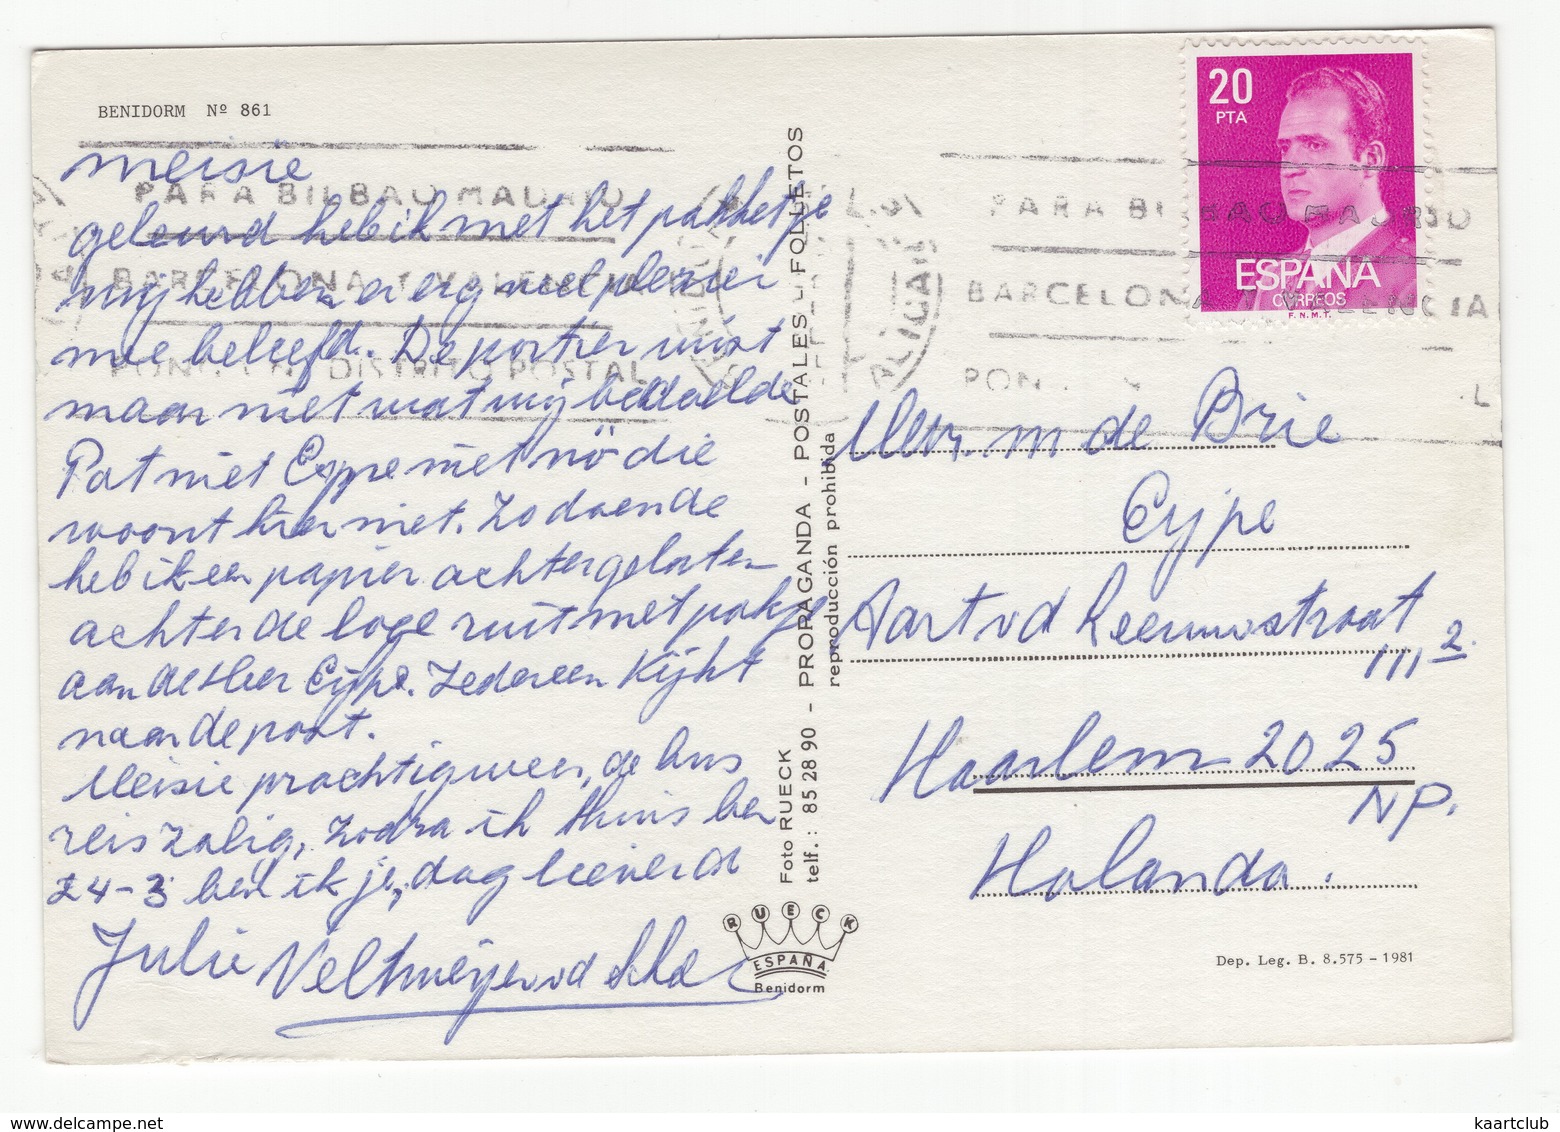 BENIDORM Nº 861
meisie
geleurd heb ik met het pakketje
wij hebben er erg veel plezier
mee beleefd. De portier wist
maar niet wat wij bedoelde
Pat niet Eype niet nö die
woont hier niet. Zodoende
heb ik een papier achtergelaten
achter de loge ruit met pakje
aan de Heer Eype. Iedereen Kijkt
naar de post.
Meisie prachtig weer, de bus
reis zalig, zodra ik thuis ben
24-3 bel ik je, dag lieverd
Julie Veltmeijer vd
PARA BILBAO MADRID
BARCELONA Y VALENCIA
PONGA EN DISTRITO POSTAL
Foto RUECK - PROPAGANDA - POSTALES - FOLLETOS
telf.: 85 28 90 reproducción prohibida
RUECK
ESPAÑA
Benidorm
ALICANTE
PARA BILBAO MADRID
BARCELONA Y VALENCIA
20
PTA
ESPAÑA
CORREOS
F.N.M.T.
Mevr. m de Brie
Eype
Aart vd Leeuwstraat
III 2.
Haarlem 2025
NP.
Holanda.
Dep. Leg. B. 8.575 - 1981
kaartclub